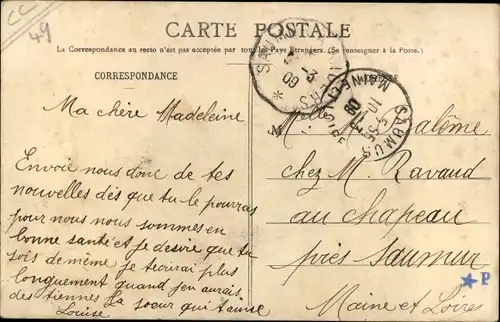 CC
49
CARTE POSTALE
La Correspondance au recto n'est pas acceptée par tous les Pays Étrangers. (Se renseigner à la Poste.)
CORRESPONDANCE
Ma chère Madeleine
Envoie nous donc de tes
nouvelles dès que tu le pourras
pour nous nous sommes en
bonne santé et je desire que tu
sois de même je t'ecrirai plus
longuement quand j'en aurais
des tiennes ta soeur qui t'aime
Louise
SAUMUR
MAINE ET
09
Melle M. Salôme
chez M. Ravaud
au chapeau
près Saumur
Maine et Loire
P